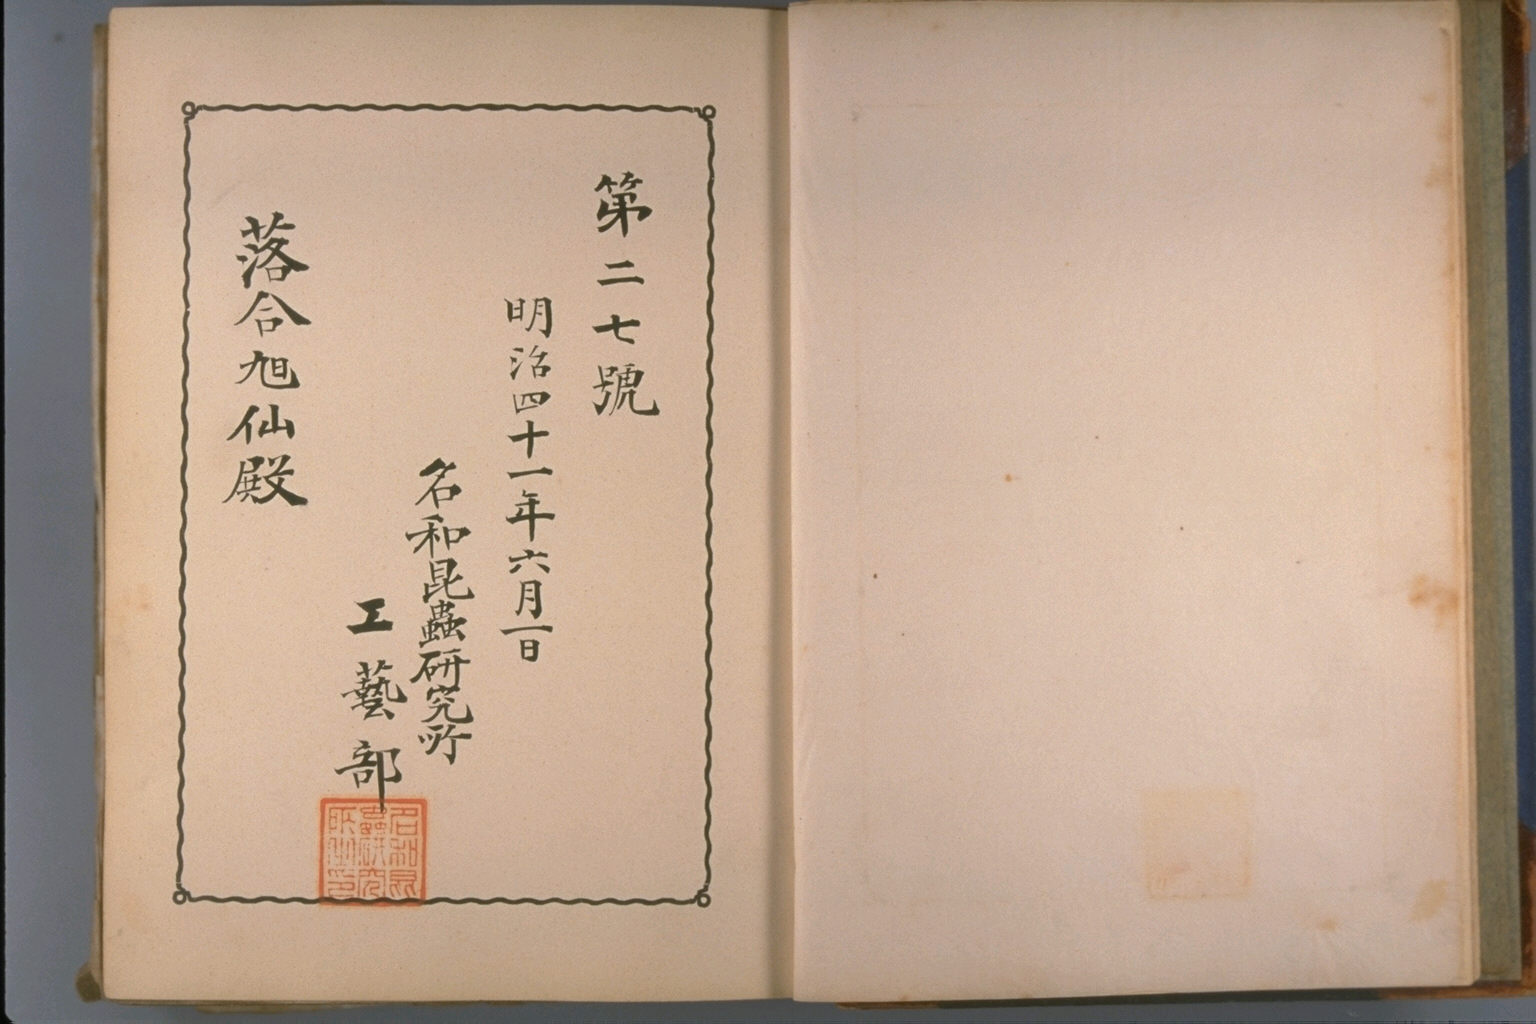 第二七號
明治四十一年六月一日
名和昆蟲研究所
工藝部
落合旭仙殿